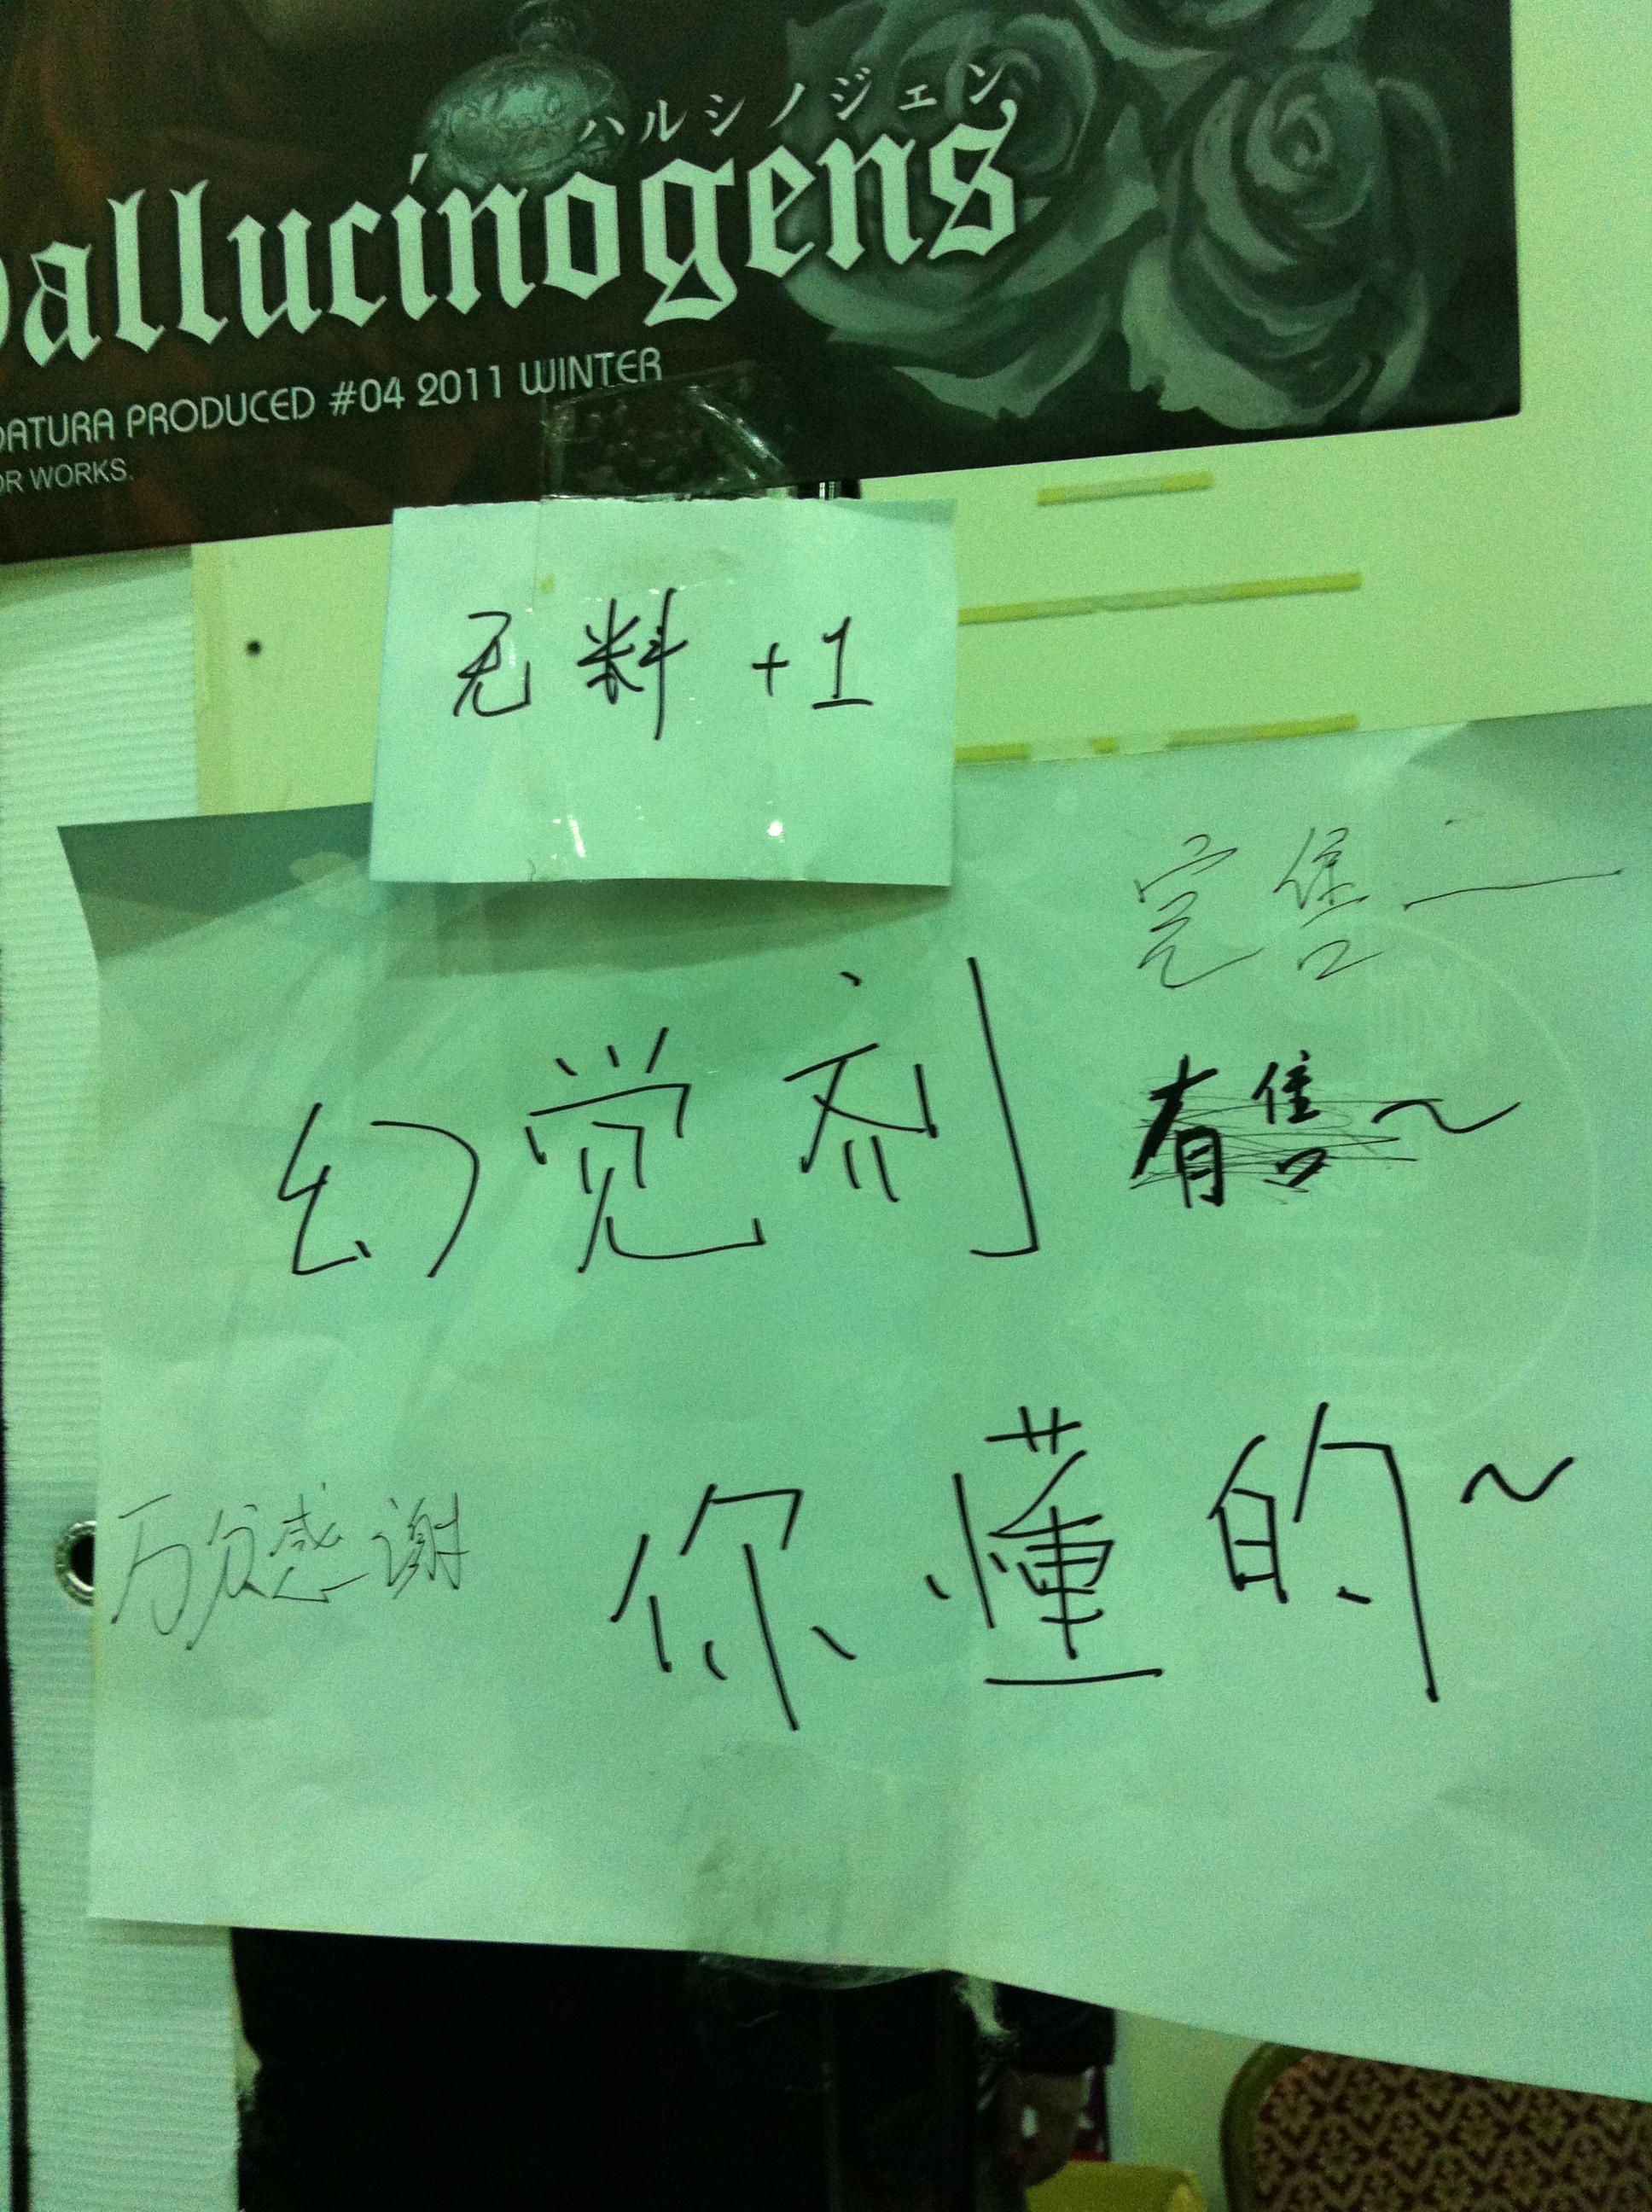 ハルシノジェン
allucinogens
DATURA PRODUCED #04 2011 WINTER
OR WORKS.
无料 +1
完售
幻觉剂 有售~
你懂的~
万分感谢